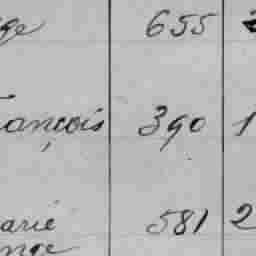 ge 655 2
ançois 390 1
arie 581 2
nge